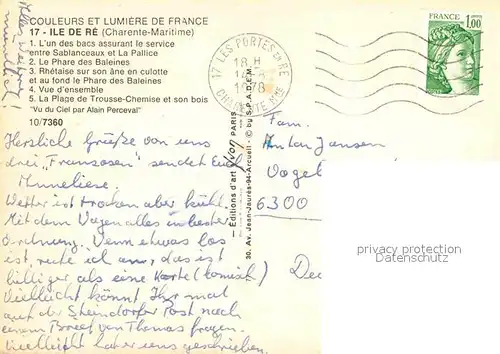 COULEURS ET LUMIÈRE DE FRANCE
17 - ILE DE RÉ (Charente-Maritime)
1. L'un des bacs assurant le service
entre Sablanceaux et La Pallice
2. Le Phare des Baleines
3. Rhétaise sur son âne en culotte
et au fond le Phare des Baleines
4. Vue d'ensemble
5. La Plage de Trousse-Chemise et son bois
"Vu du Ciel par Alain Perceval"
10/7360
Alles Weitere
mündlich!
Herzliche Grüße von uns
drei „Franzosen" sendet Euch
Anneliese.
Wetter ist trocken aber kühl.
Mit dem Wagen alles in bester
Ordnung. Wenn etwas los
ist, rufe ich an, das ist
billiger als eine Karte (komisch)
Vielleicht könnt Ihr mal
auf der Steindorfer Post nach
einem Brief von Thomas fragen.
Vielleicht hat er uns geschrieben.
- Éditions d'art Yvon PARIS
30, Av. Jean-Jaurès-94-Arcueil - © by S.P.A.D.E.M.
17 LES PORTES EN RE
18 H
1978
CHARENTE MME
FRANCE
1,00
Fam.
Anton Jansen
Vogel
6300
privacy protection
Datenschutz